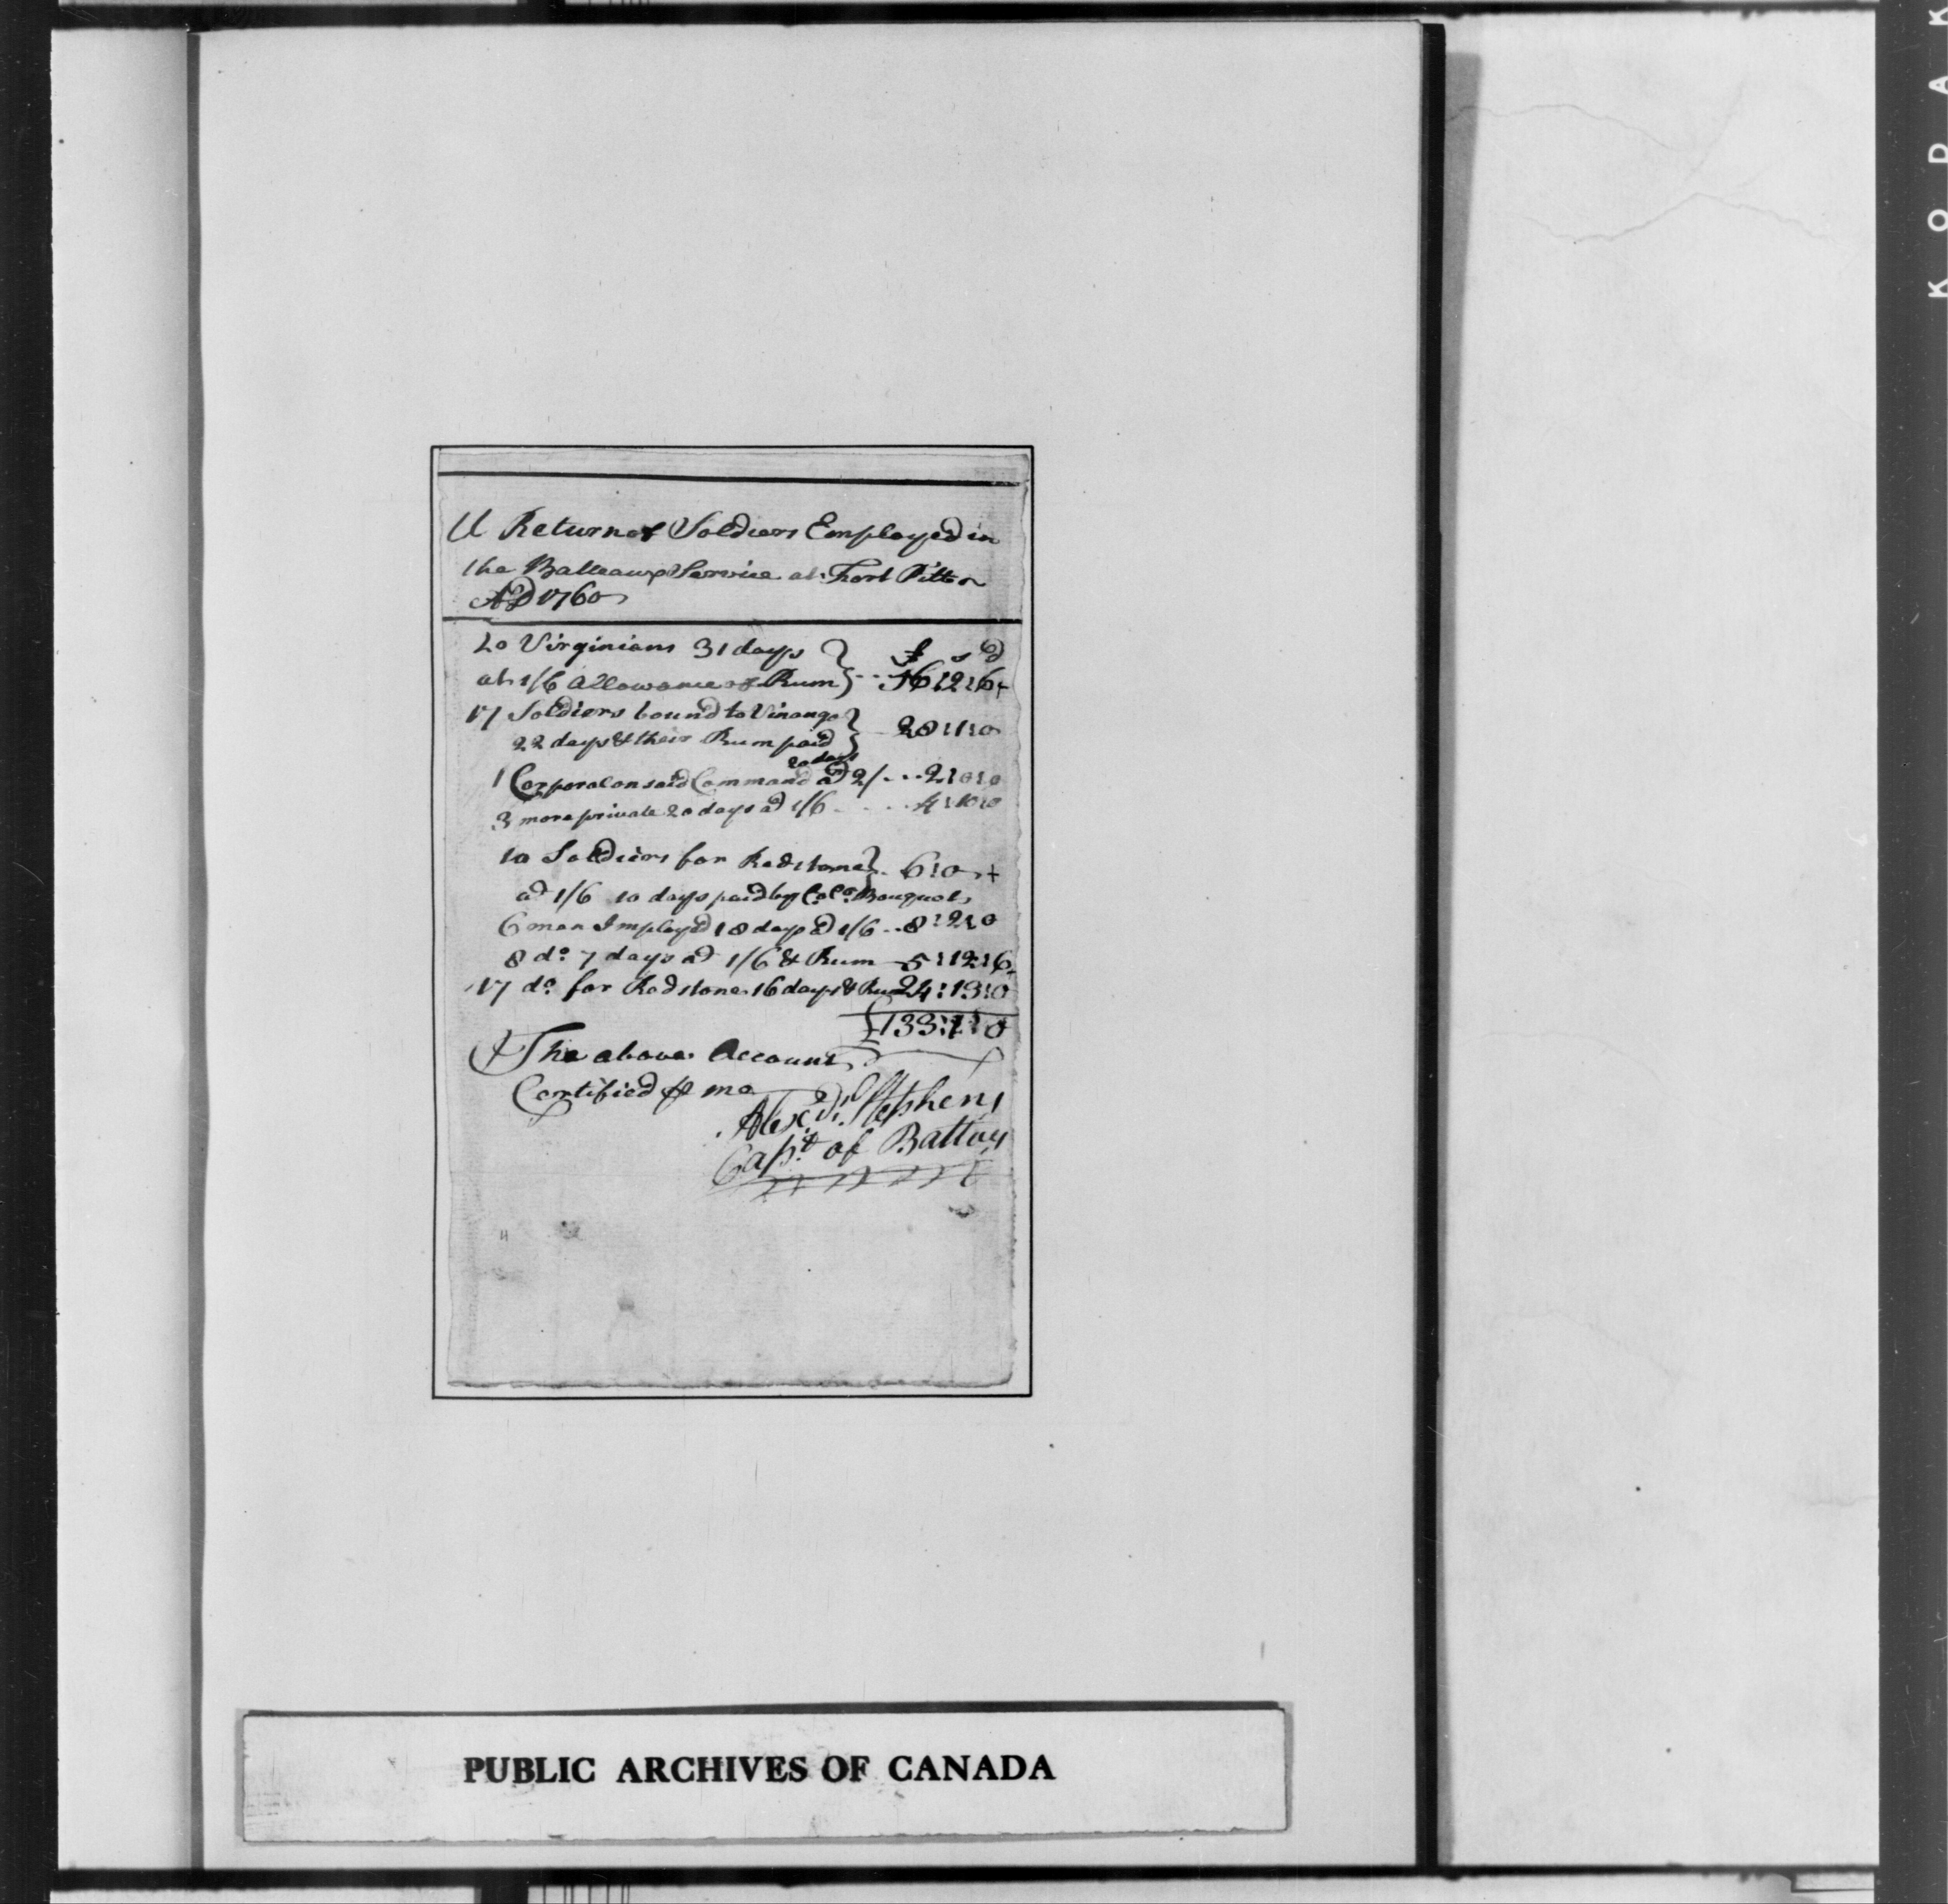 A Return of Soldiers Employed in
the Batteaux Service at Fort Pitt
AD 1760
£ s d
20 Virginians 31 days
at 1/6 Allowance of Rum 56:12:6
17 Soldiers bound to Vinango
22 days & their Rum paid 28:1:0
20 days
1 Corporal on said Command ad 2/ ... 2:0:0
3 more private 20 days ad 1/6 .... 4:10:0
10 Soldiers for Redstone 6:0
ad 1/6 10 days paid by Colo. Bouquet
6 men Imployd 18 days ad 1/6 .. 8:2:0
8 do 7 days ad 1/6 & Rum 5:12:6
17 do for Redstone 16 days & Rum 24:13:0
£133:1:0
The above Account
Certified me
Alexdr. Stephens
Capt of Battoy
PUBLIC ARCHIVES OF CANADA
KODAK